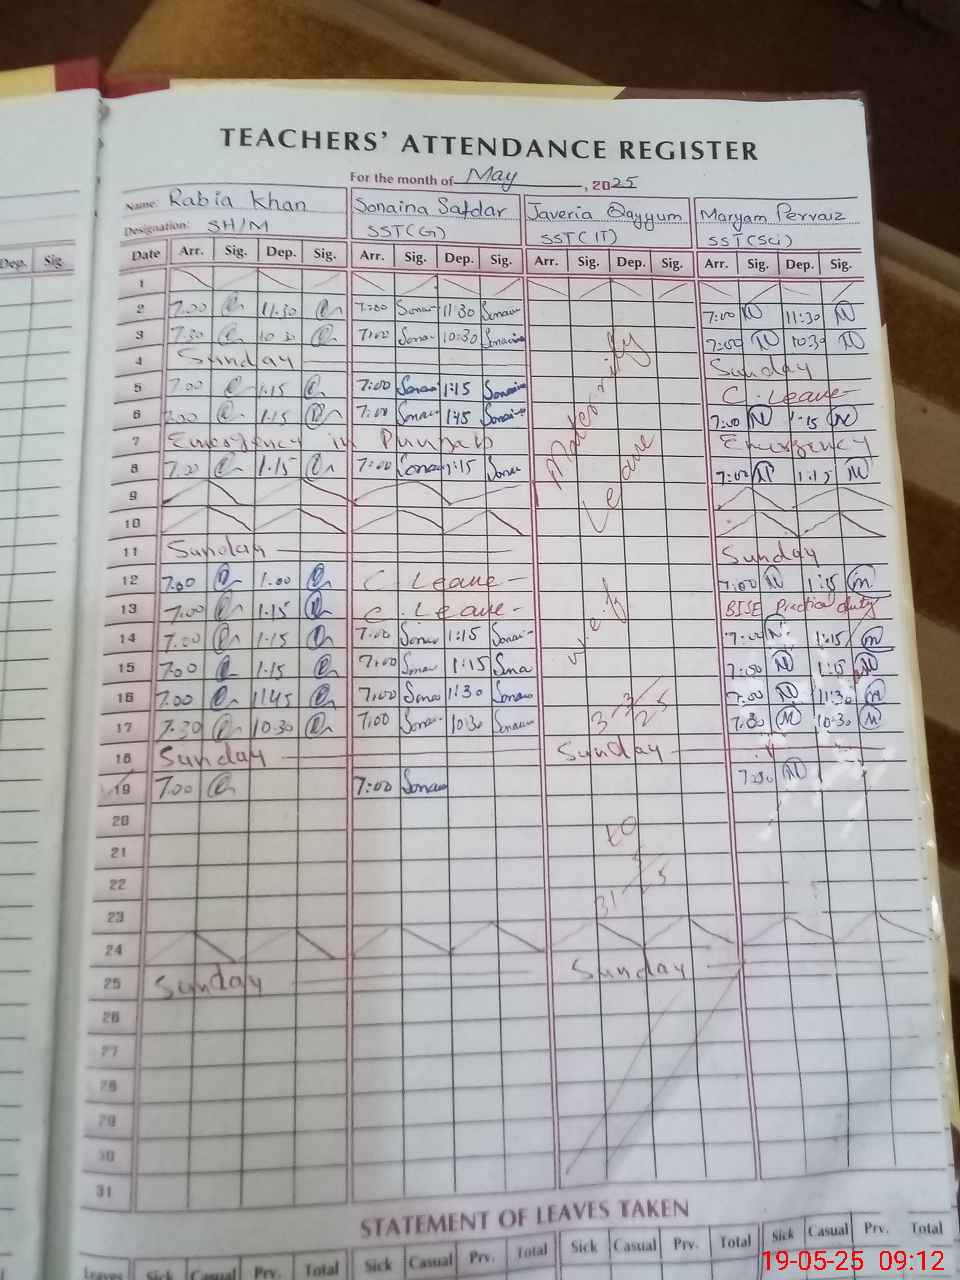 TEACHERS' ATTENDANCE REGISTER
For the month of May, 2025
Name: Rabia Khan Sonaina Safdar Javeria Qayyum Maryam Pervaiz
Designation: SH/M SST(G) SST(IT) SST(Sci)
Dep. Sig.
Date Arr. Sig. Dep. Sig. Arr. Sig. Dep. Sig. Arr. Sig. Dep. Sig. Arr. Sig. Dep. Sig.
1
2 7.00 11.30 7:00 11:30 7:00 11:30
3 7.30 10.30 7:00 10:30 7:00 10:30
4 Sunday Sunday
5 7.00 1.15 7:00 1:15 C. Leave
6 7.00 1.15 7:00 1:15
7 Emergency in Punjab Emergency
8 7.00 1.15 7:00 1:15 7:00 1:15
Maternity
Leave
9
10
11 Sunday Sunday
12 7.00 1.00 C. Leave 7:00 1:15
13 7.00 1.15 C. Leave BISE Practical duty
14 7.00 1.15 7:00 1:15 7:00 1:15
w.e.f
15 7.00 1.15 7:00 1:15 7:00 1:15
16 7.00 11.45 7:00 11:30 7:00 11:30
17 7.30 10.30 7:00 10:30 10:30
18 Sunday Sunday
19 7.00 7:00
20
to
21
22
23
24
25 Sunday Sunday
26
27
28
29
30
31
STATEMENT OF LEAVES TAKEN
Leaves Sick Casual Prv. Total Sick Casual Prv. Total Sick Casual Prv. Total Sick Casual Prv. Total
19-05-25 09:12